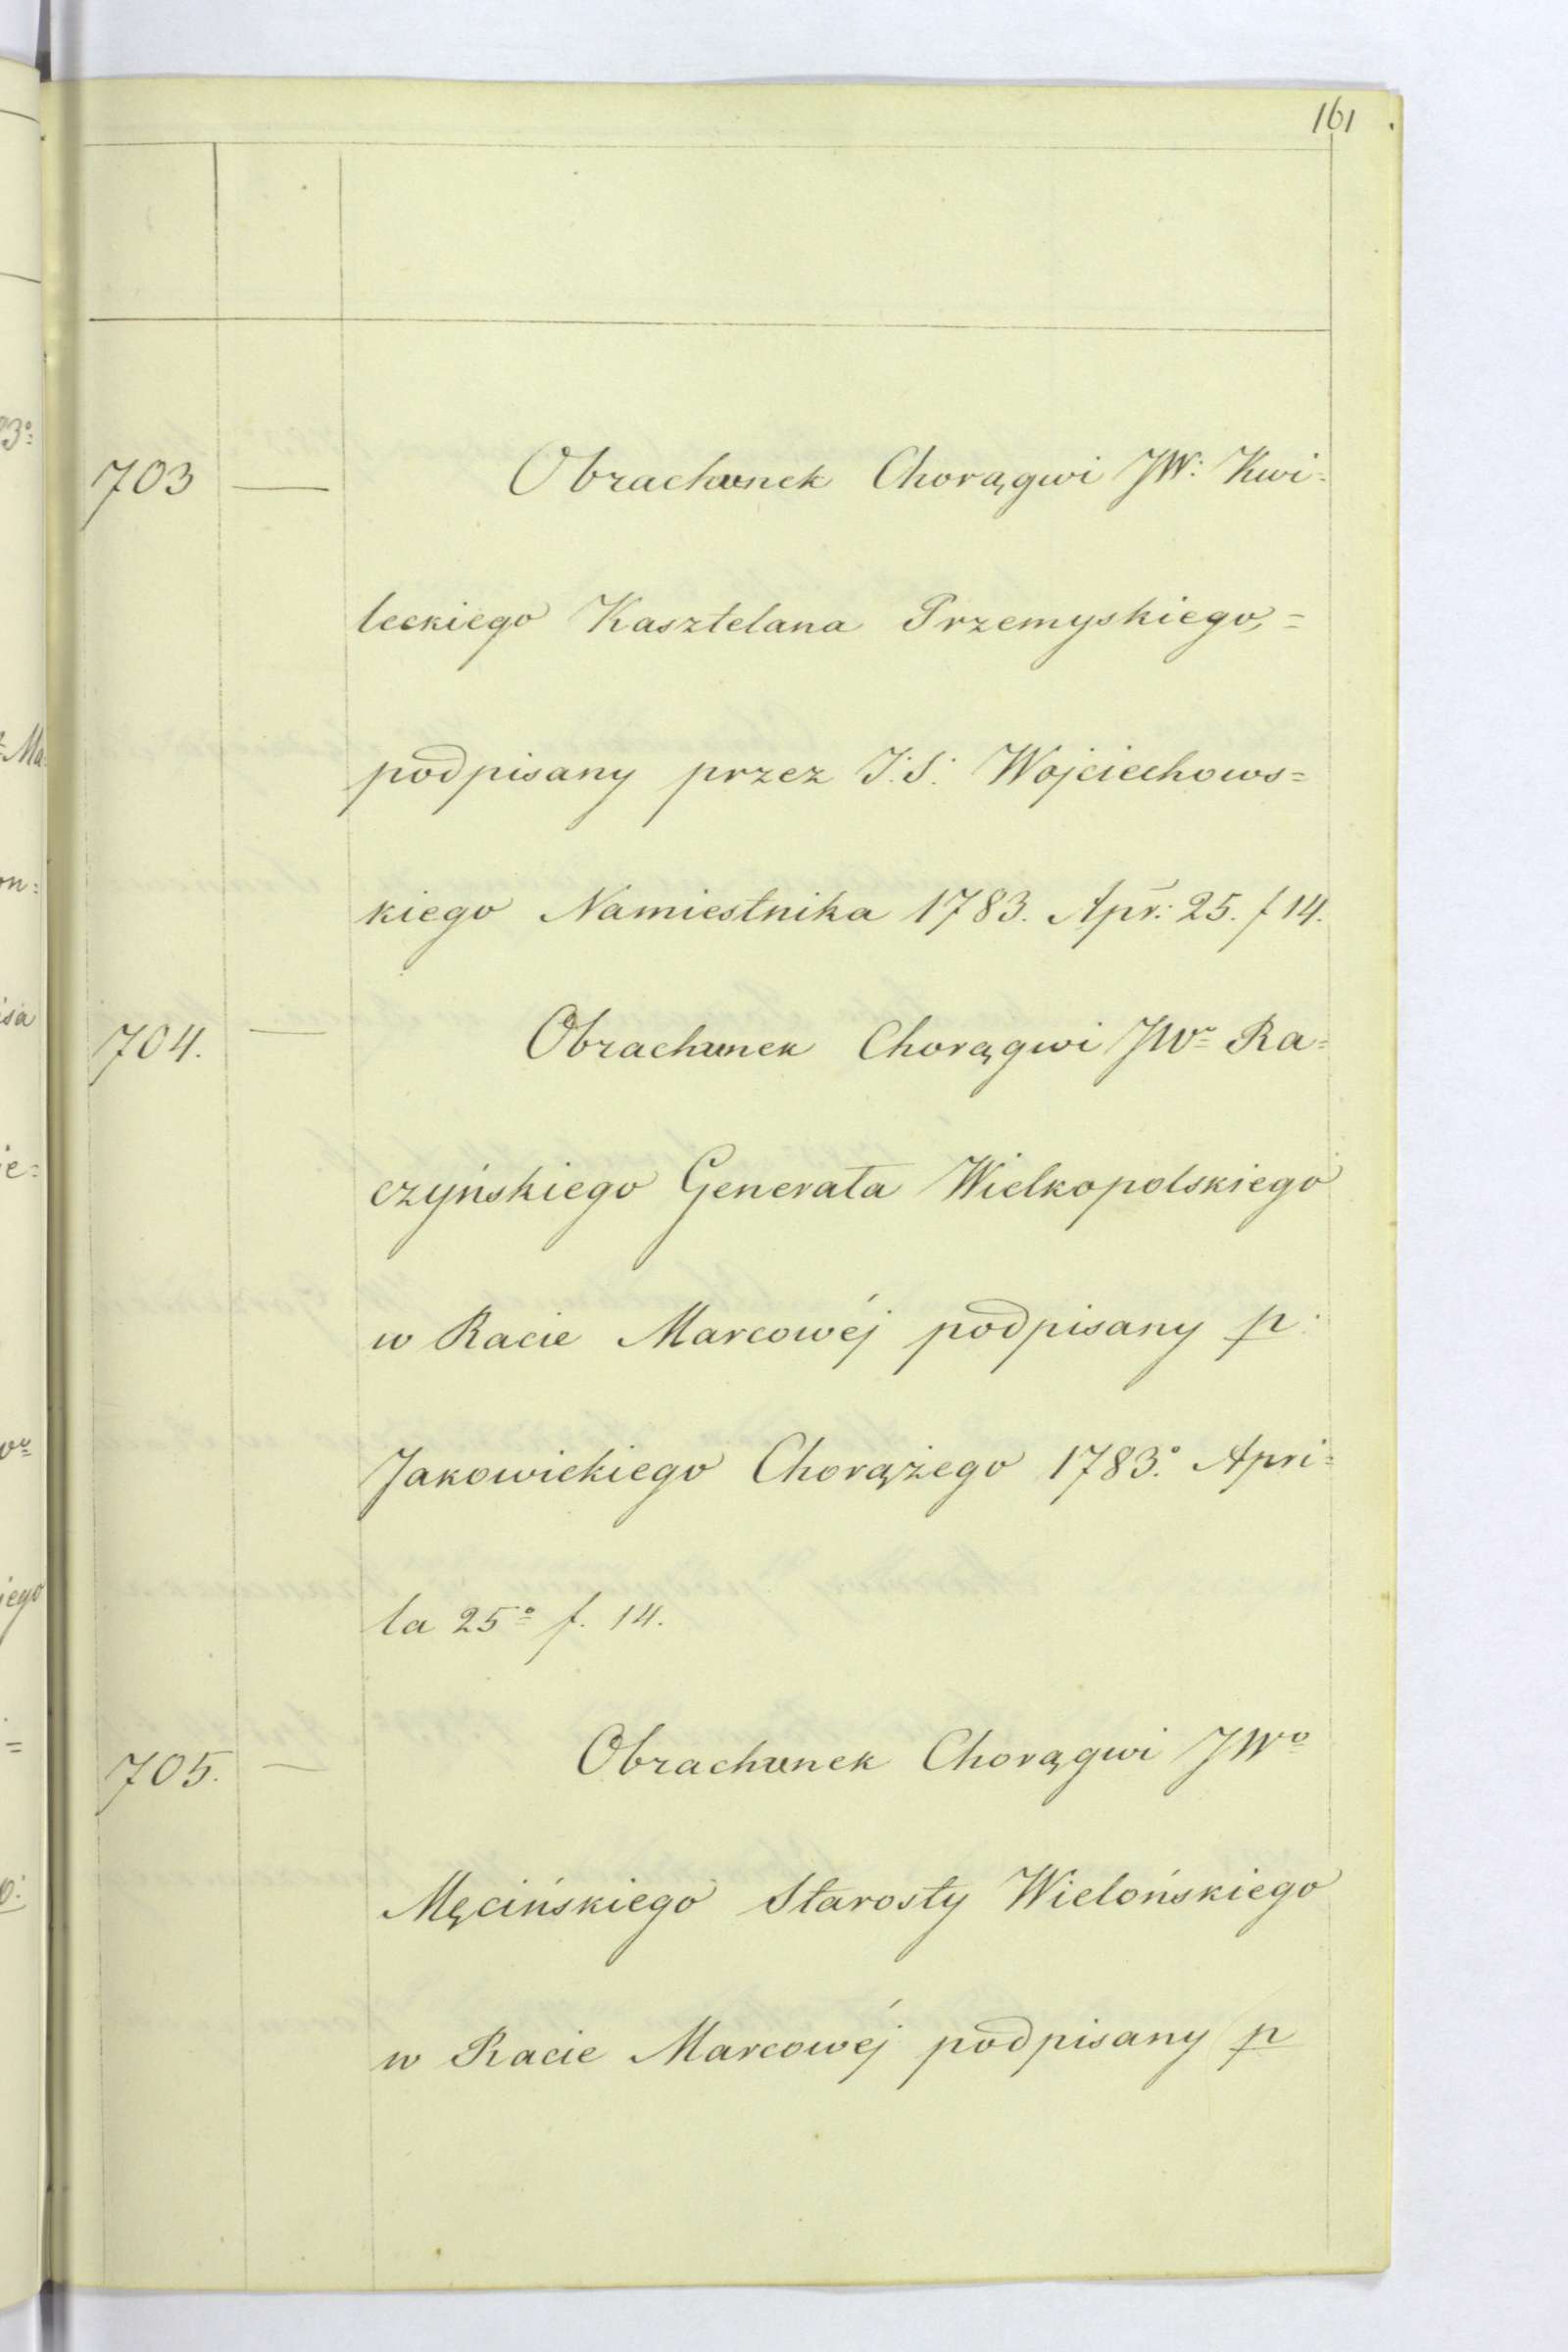 161
703 — Obrachunek Chorągwi JW: Kwi=
leckiego Kasztelana Przemyskiego,=
podpisany przez J: S: Wojciechows=
kiego Namiestnika 1783. Apr: 25. f 14.
704. — Obrachunek Chorągwi JWo Ra=
czyńskiego Generała Wielkopolskiego
w Racie Marcowéj podpisany p:
Jakowickiego Chorążego 1783.o Apri=
la 25o f. 14.
705. — Obrachunek Chorągwi JWo
Męcińskiego Starosty Wielońskiego
w Racie Marcowéj podpisany p